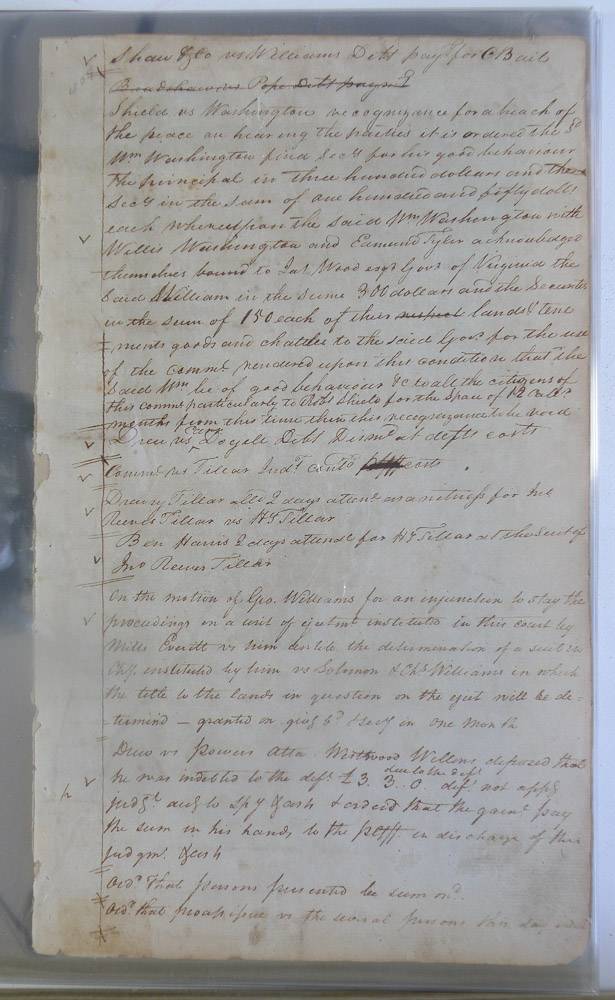 Shaw & Co vs Williams Debt payt for C Bail
Bradshaw vs Pope Debt paymt
Shield vs Washington recognizance for a breach of
the peace on hearing the parties it is ordered the sd
Wm Washington find Secy for his good behaviour
the principal in three hundred dollars and the
Secy in the sum of one hundred and fifty dolls
each whereupon the said Wm Washington with
Willis Washington and Edmund Tyler acknowledged
themselves bound to Jas Wood esqr Govr of Virginia the
Said William in the sume 300 dollars and the Securities
in the sum of 150 each of their respect lands & tene
=ments goods and chattles to the said Govr for the use
of the Commt rendered upon this condition that the
Said Wm be of good behaviour &c to all the citizens of
this commt particularly to Robt Shield for the Space of 12
months from this time then this recognizance to be void
Drew vs Doyell Debt Dismd at defts costs
Commt vs Tillar Judt costs
Drewry Tillar 2 days attenc as a witness for Jno
Reeves Tillar vs H T Tillar
Ben Harris 2 days attendc for H T Tillar at the suit of
Jno Reeves Tillar
On the motion of Geo. Williams for an injunction to stay the
proceedings in a writ of ejectmt instituted in this court by
Mills Everitt vs him untile the determination of a suit in
Chy. instituted by him vs Solomon & Chs Williams in which
the title to the lands in question on the eject will be de-
-termind — granted on givg bd & secy in one month
Drew vs Powers Atta. Willons deposed that
he was indebted to the deft £3. 3. 0 deft not appg
due to the deft
judgt accg to Spy & cash & ordered that the garnt pay
the sum in his hands to the pltff in discharge of this
judgmt & cash
Ordd That persons presented be sumond
Ordd that process issue vs the several persons this day